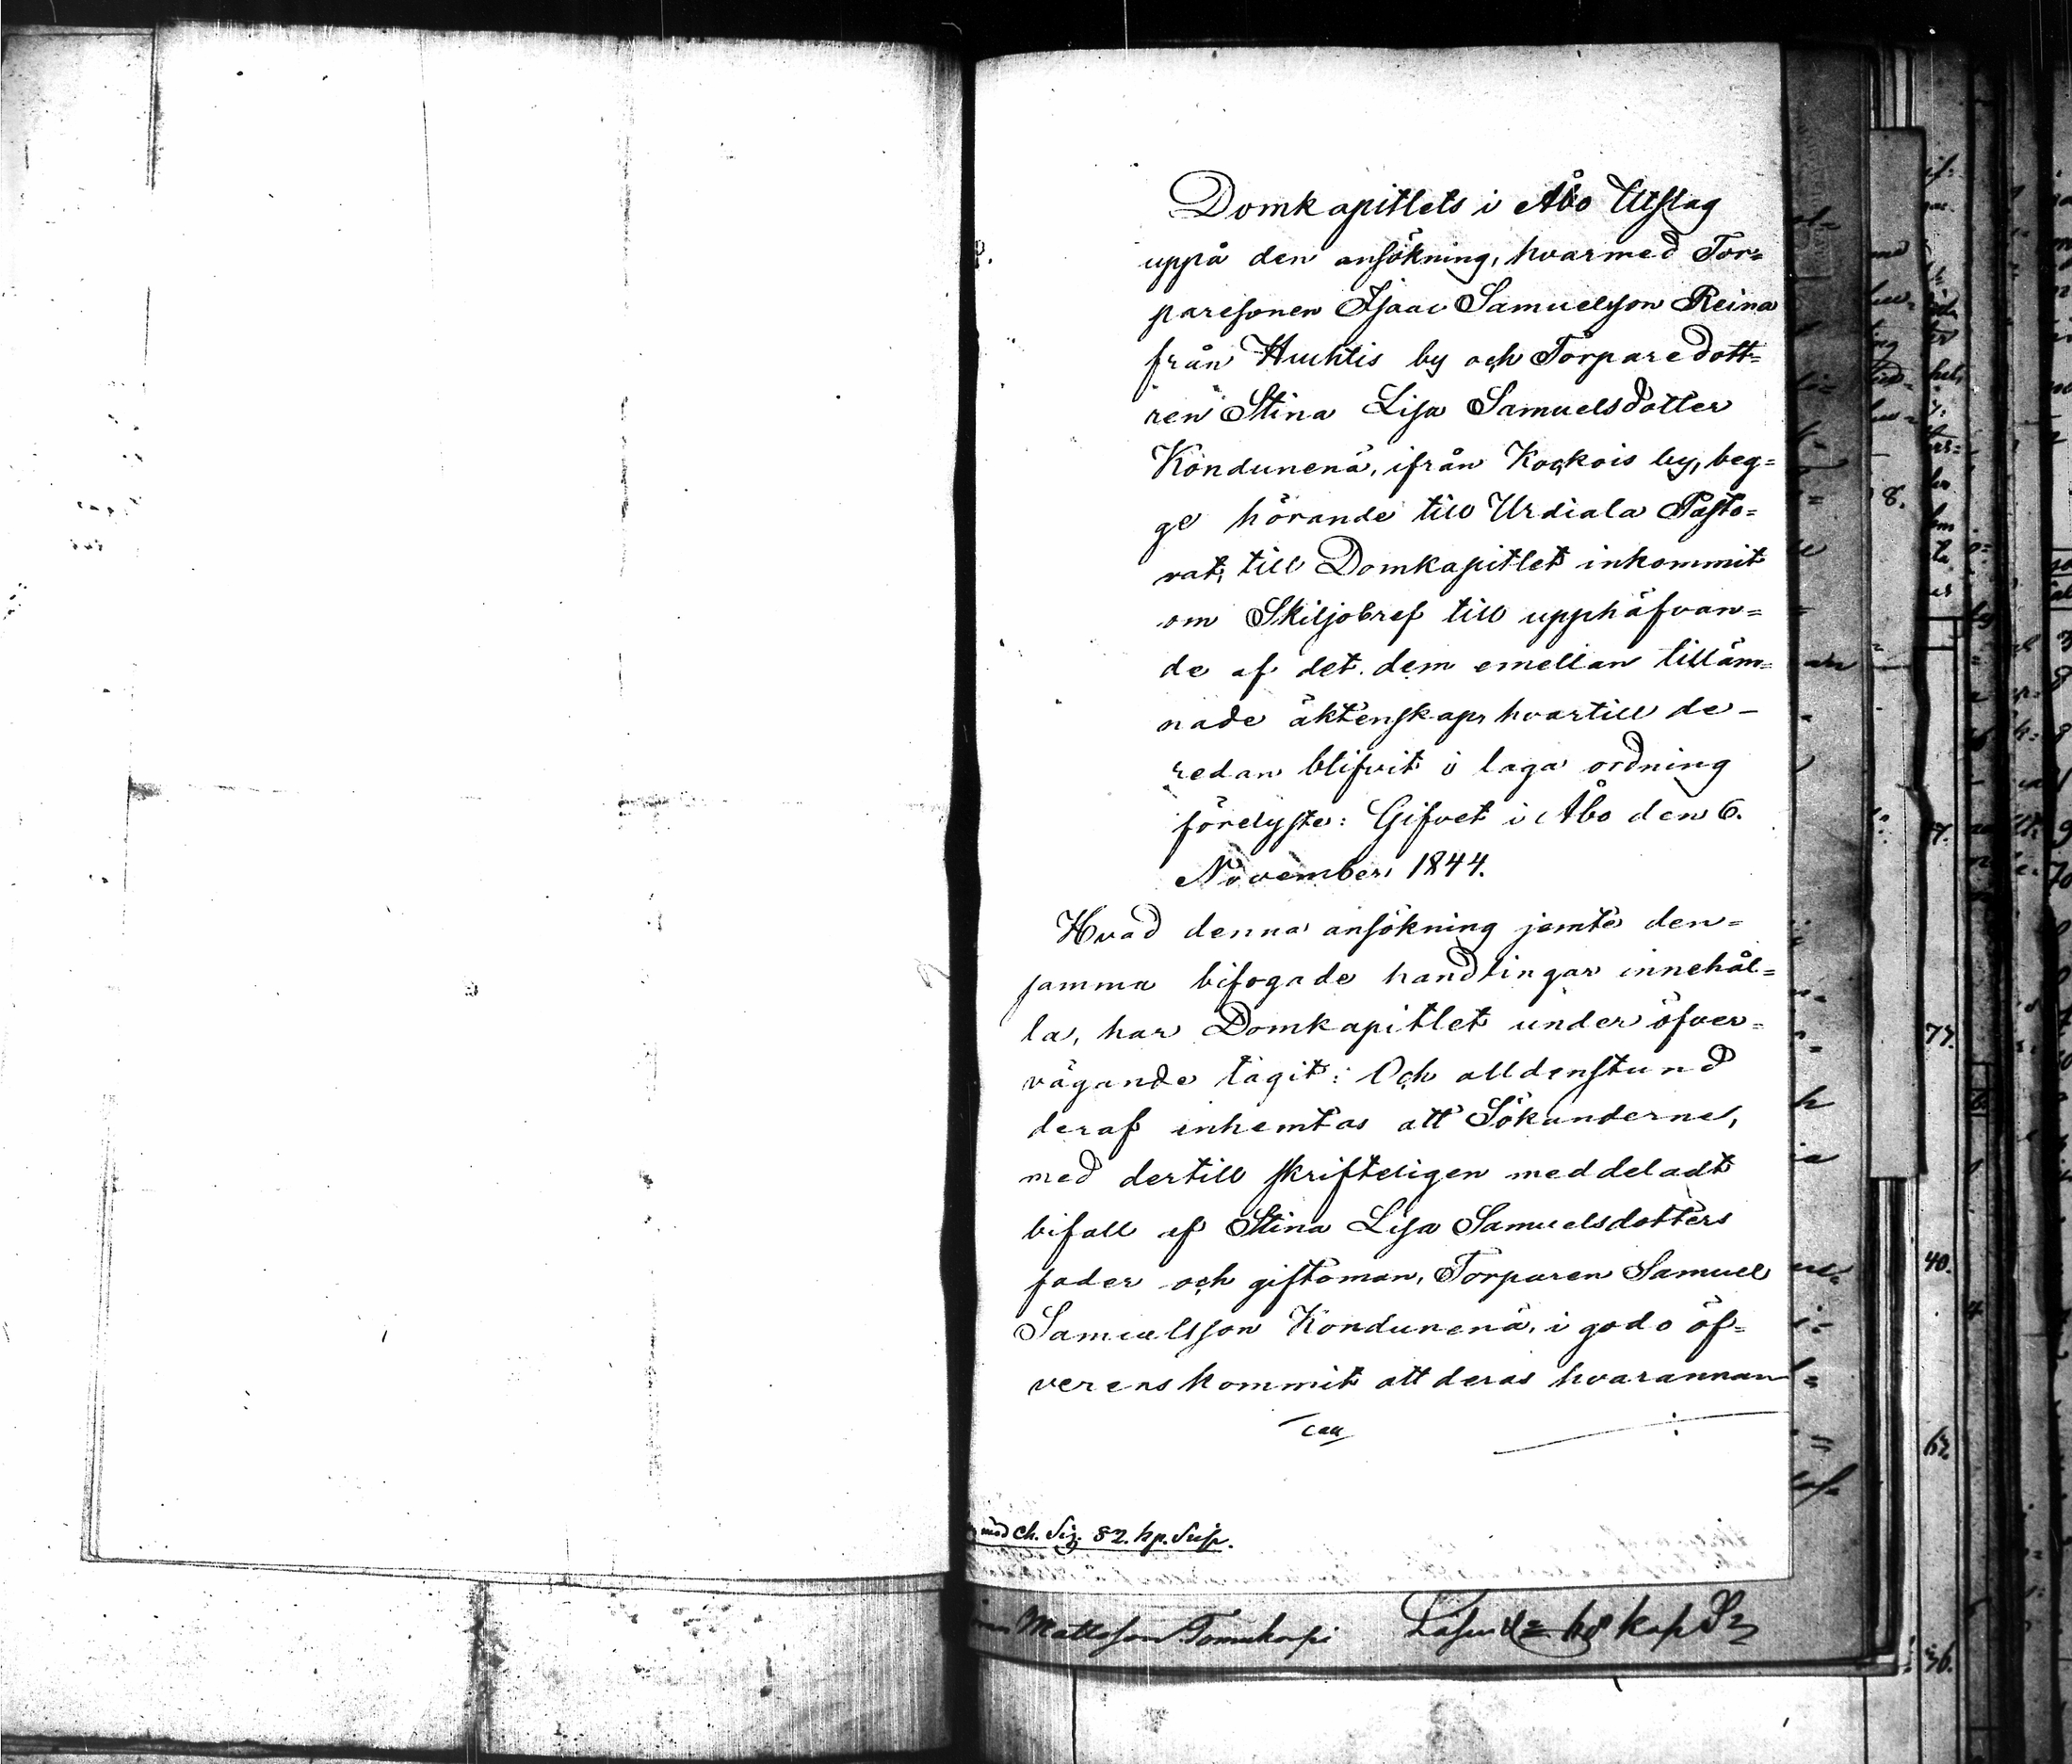 Domkapitlets i Åbo Utslag
uppå den ansökning, hvarmed Tor=
paresonen Isaac Samuelsson Reina
från Huhtis by och Torparedott=
ren Stina Lisa Samuelsdotter
Kondunenä, ifrån Kockois by, beg=
ge hörande till Urdiala Pasto=
rat, till Domkapitlet inkommit
om Skiljobref till upphäfvan=
de af det dem emellan tilläm=
nade äktenskap, hvartill de_
redan blifvit i laga ordning
förelyste: Gifvet i Åbo den 6.
November 1844.
Hvad denna ansökning jemte den=
samma bifogade handlingar innehål=
la, har Domkapitlet under öfver=
vägande tagit: Och alldenstund
deraf inhemtas att Sökanderne,
med dertill skrifteligen meddeladt
bifall af Stina Lisa Samuelsdotters
fader och giftoman, Torparen Samuel
Samuelsson Kondunenä, i godo öf=
verenskommit att deras hvarannan
Mattsson
8.
77.
40.
62.
36.